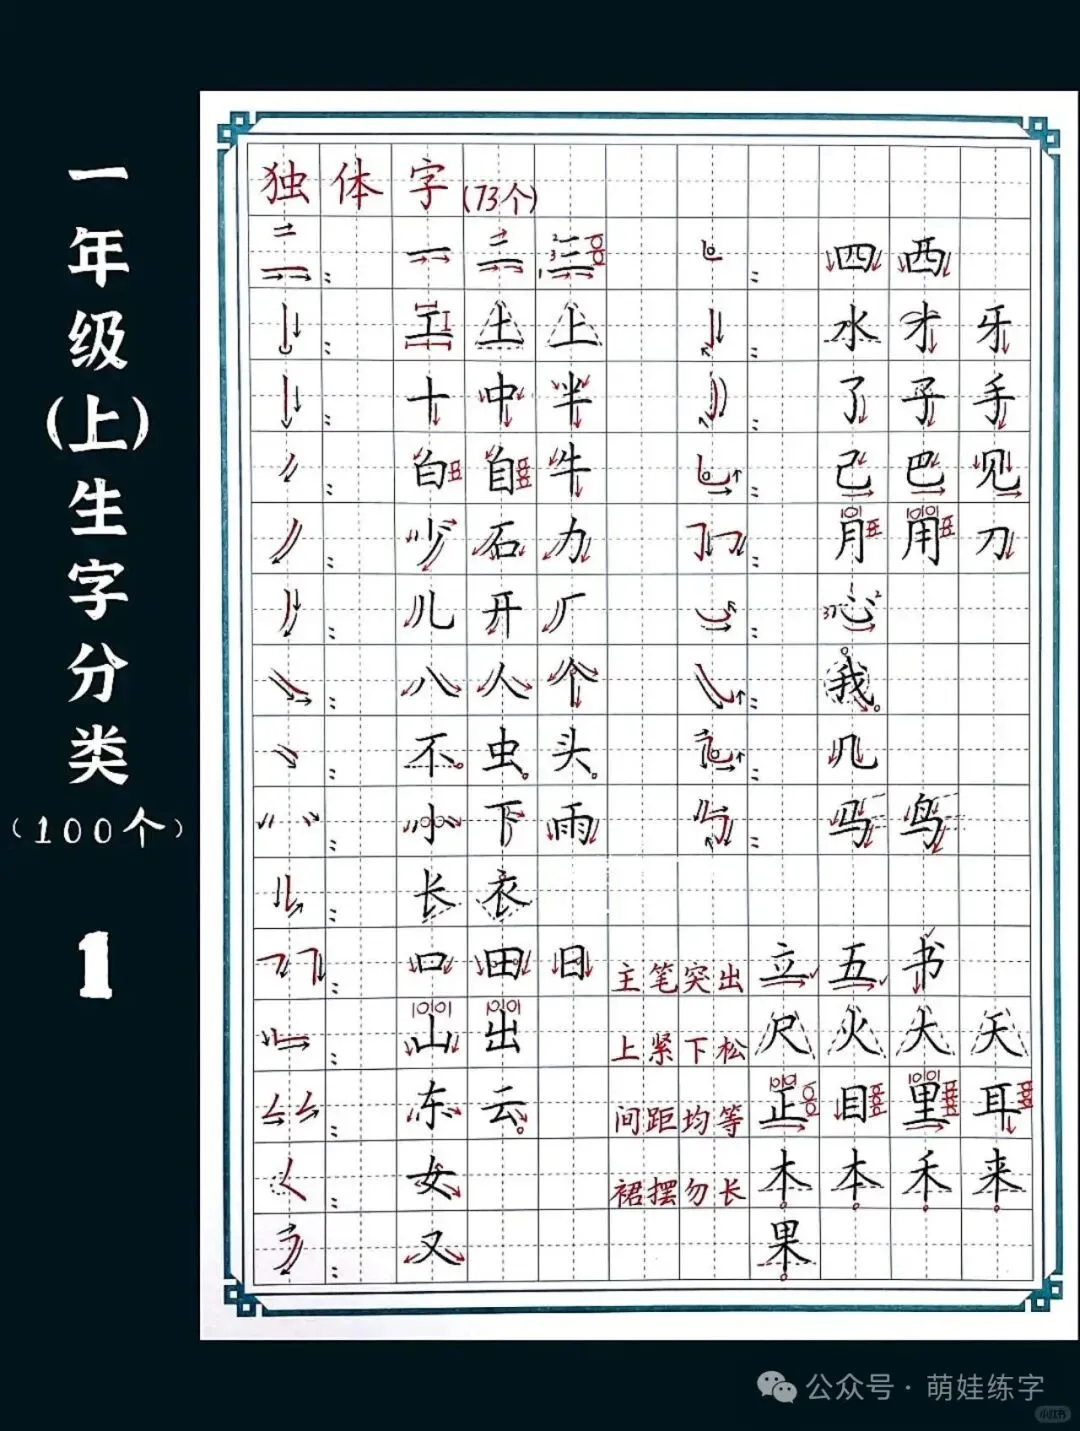 一年级(上)生字分类
(100个)
1
独体字(73个)
一 二 三 四 西
工 土 上 水 才 牙
十 中 半 了 子 手
白 自 牛 己 巴 见
少 石 力 月 用 刀
儿 开 厂 心
八 人 个 我
不 虫 头 几
小 下 雨 马 鸟
长 衣
口 田 日 主笔突出 立 五 书
山 出 上紧下松 尺 火 大 天
东 云 间距均等 正 目 里 耳
女 裙摆勿长 木 本 禾 来
又 果
公众号·萌娃练字
小红书